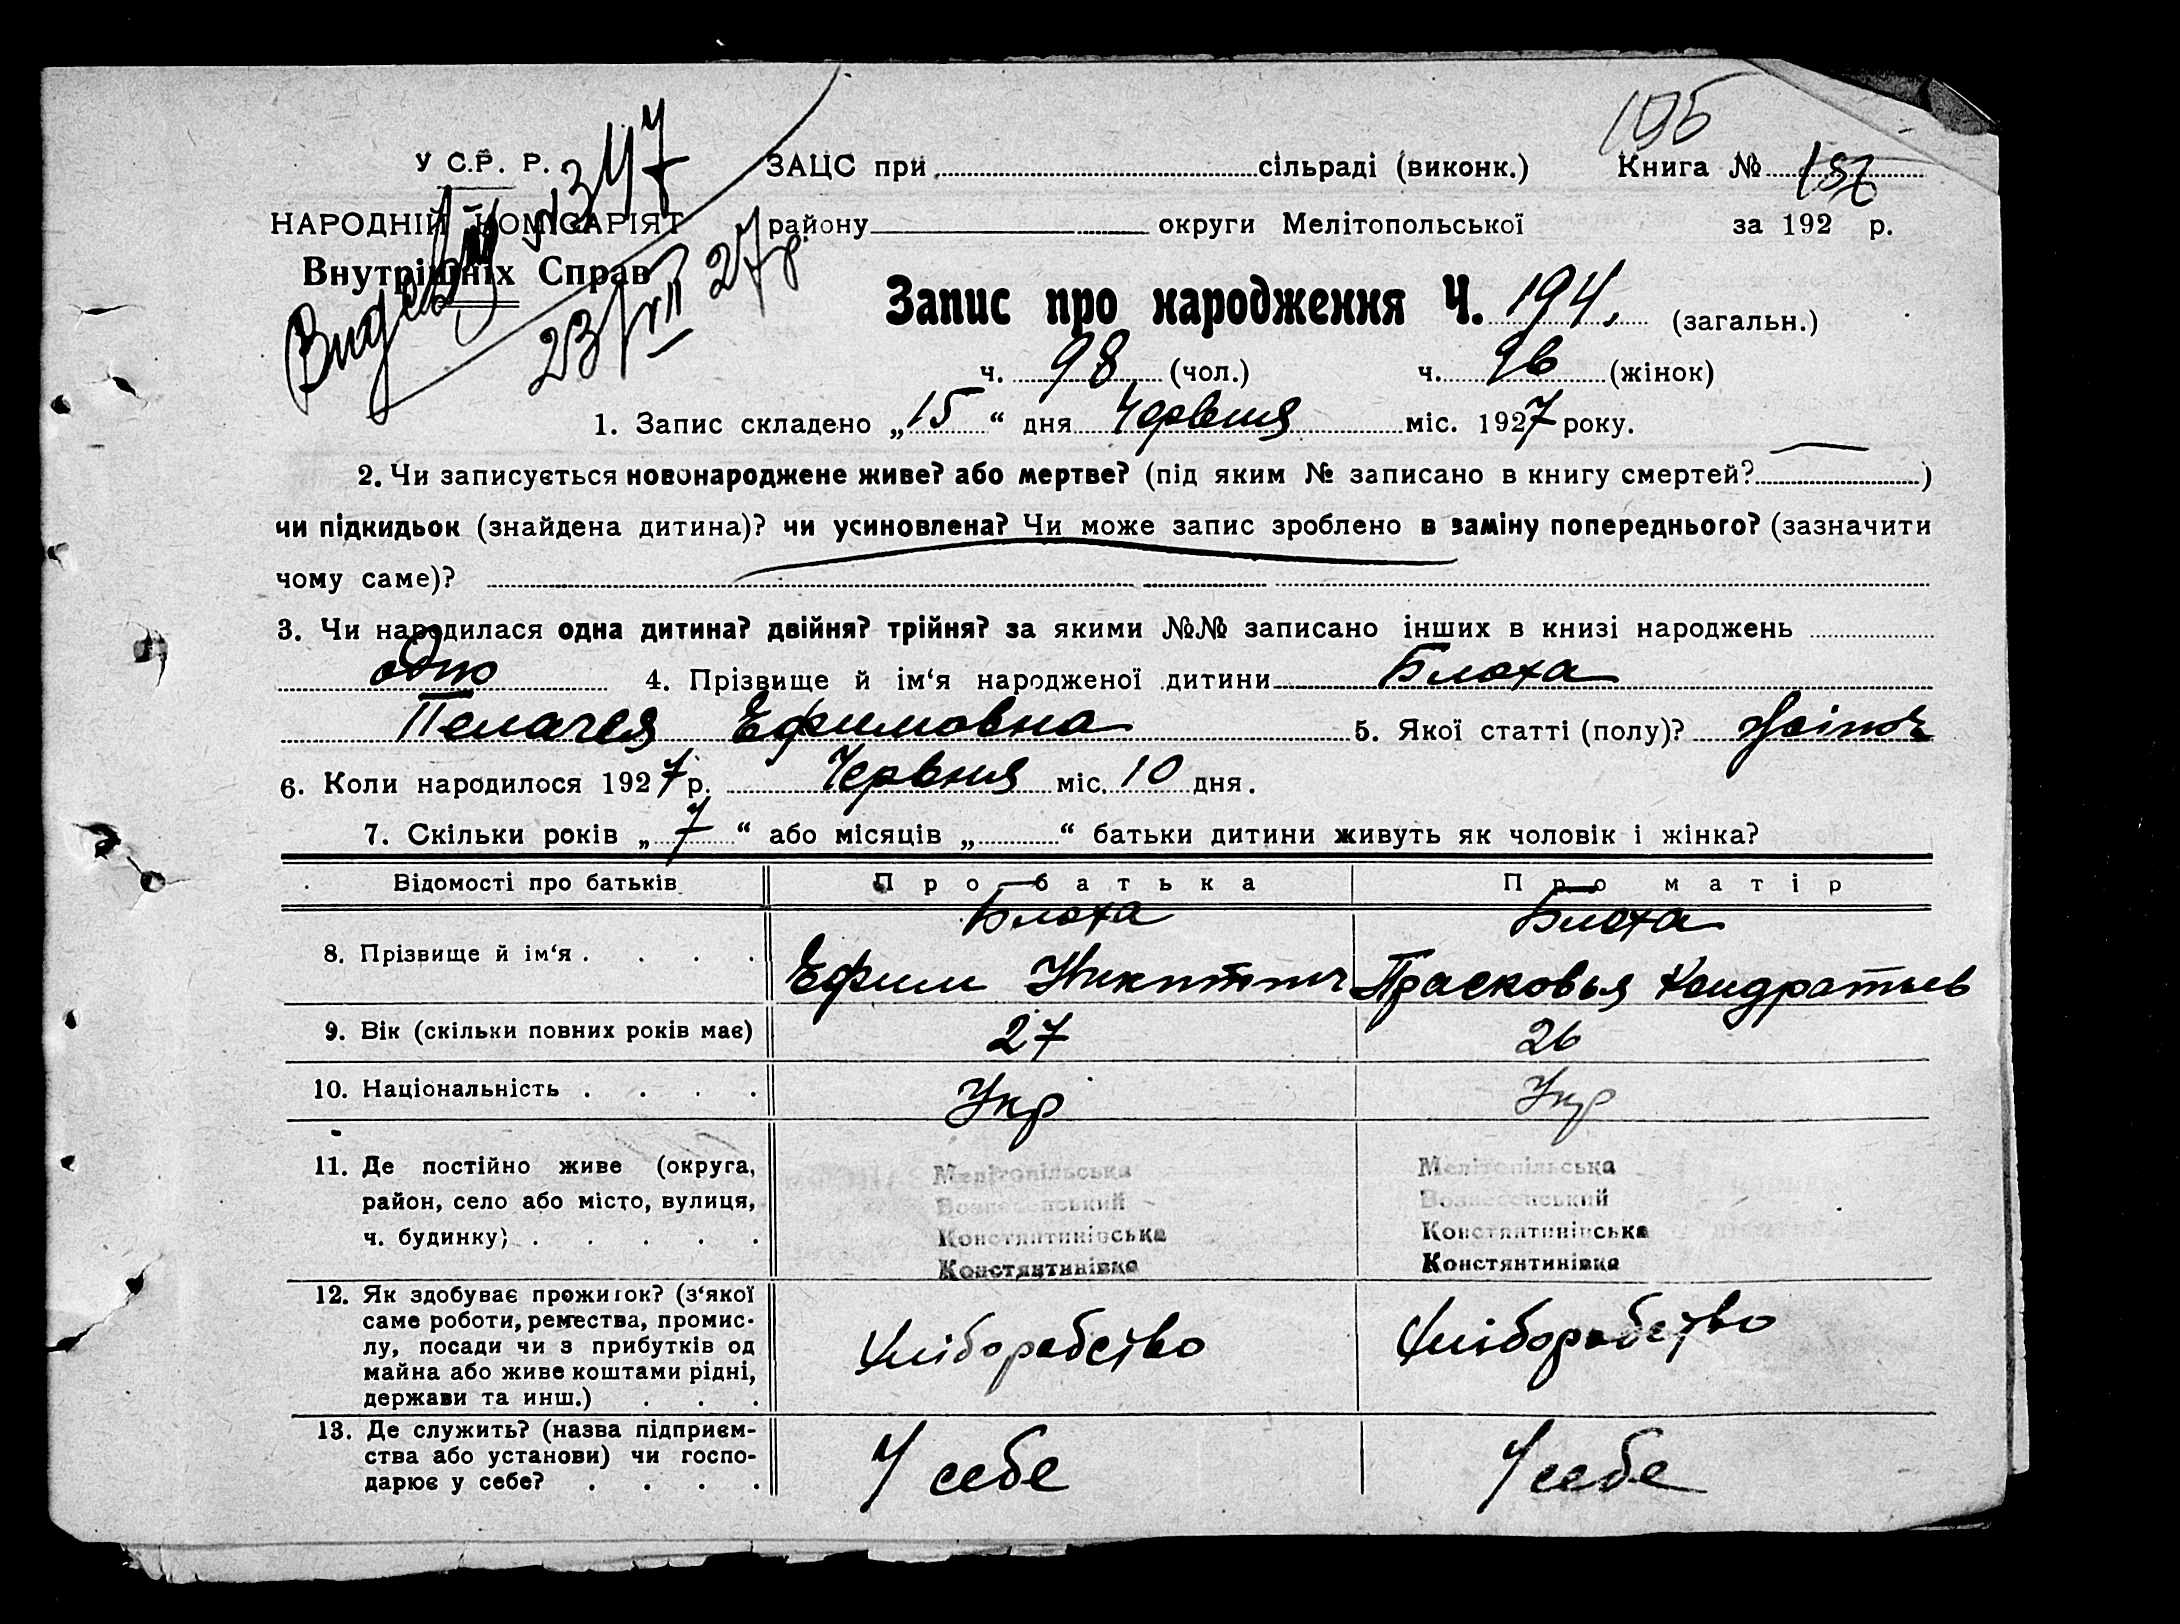 195
У.С.Р.Р. ЗАЦС при сільраді (виконк.) Книга №
№ 347
НАРОДНІЙ КОМІСАРІЯТ району округи Мелітопольської за 192 р.
Внутрішніх Справ
23/VII 27р.
Запис про народження Ч. 194. (загальн.)
ч. 98 (чол.) ч. 96 (жінок)
1. Запис складено „15“ дня Червня міс. 1927 року.
2. Чи записується новонароджене живе? або мертве? (під яким № записано в книгу смертей? )
чи підкидьок (знайдена дитина)? чи усиновлена? Чи може запис зроблено в заміну попереднього? (зазначити
чому саме)?
3. Чи народилася одна дитина? двійня? трійня? за якими №№ записано інших в книзі народжень
одно 4. Прізвище й ім‘я народженої дитини Блоха
Пелагея Ефимовна 5. Якої статті (полу)? жіноч
6. Коли народилося 1927 р. Червня міс. 10 дня.
7. Скільки років „7“ або місяців „ “ батьки дитини живуть як чоловік і жінка?
Відомості про батьків Про батька Про матір
Блоха Блоха
8. Прізвище й ім‘я . . . . Ефим Никитич Прасковья Кондратьев
9. Вік (скільки повних років має) 27 26
10. Національність . . . . Укр Укр
11. Де постійно живе (округа, Мелітопільська Мелітопільська
район, село або місто, вулиця, Вознесенський Вознесенський
ч. будинку) . . . . . Констянтинівська Констянтинівська
Констянтинівка Констянтинівка
12. Як здобуває прожиток? (з‘якої
саме роботи, ремества, промис-
лу, посади чи з прибутків од Хліборобство Хліборобство
майна або живе коштами рідні,
держави та инш.) . . .
13. Де служить? (назва підприєм-
ства або установи) чи госпо- У себе У себе
дарює у себе? . . . .